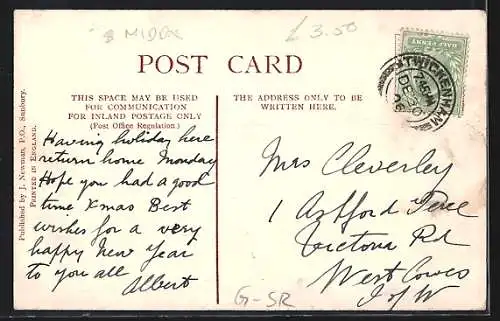 B MIDDX
£ 3.50
POST CARD
THIS SPACE MAY BE USED
FOR COMMUNICATION
FOR INLAND POSTAGE ONLY
(Post Office Regulation.)
THE ADDRESS ONLY TO BE
WRITTEN HERE.
HALF PENNY
TWICKENHAM
DE 30
06
Published by J. Newman, P.O., Sunbury.
PRINTED IN ENGLAND.
Having holiday here
return home Monday
Hope you had a good
time Xmas Best
wishes for a very
happy New Year
to you all
Albert
Mrs Cleverley
1 Ashford Terr
Victoria Rd
West Cowes
I of W
G-SR